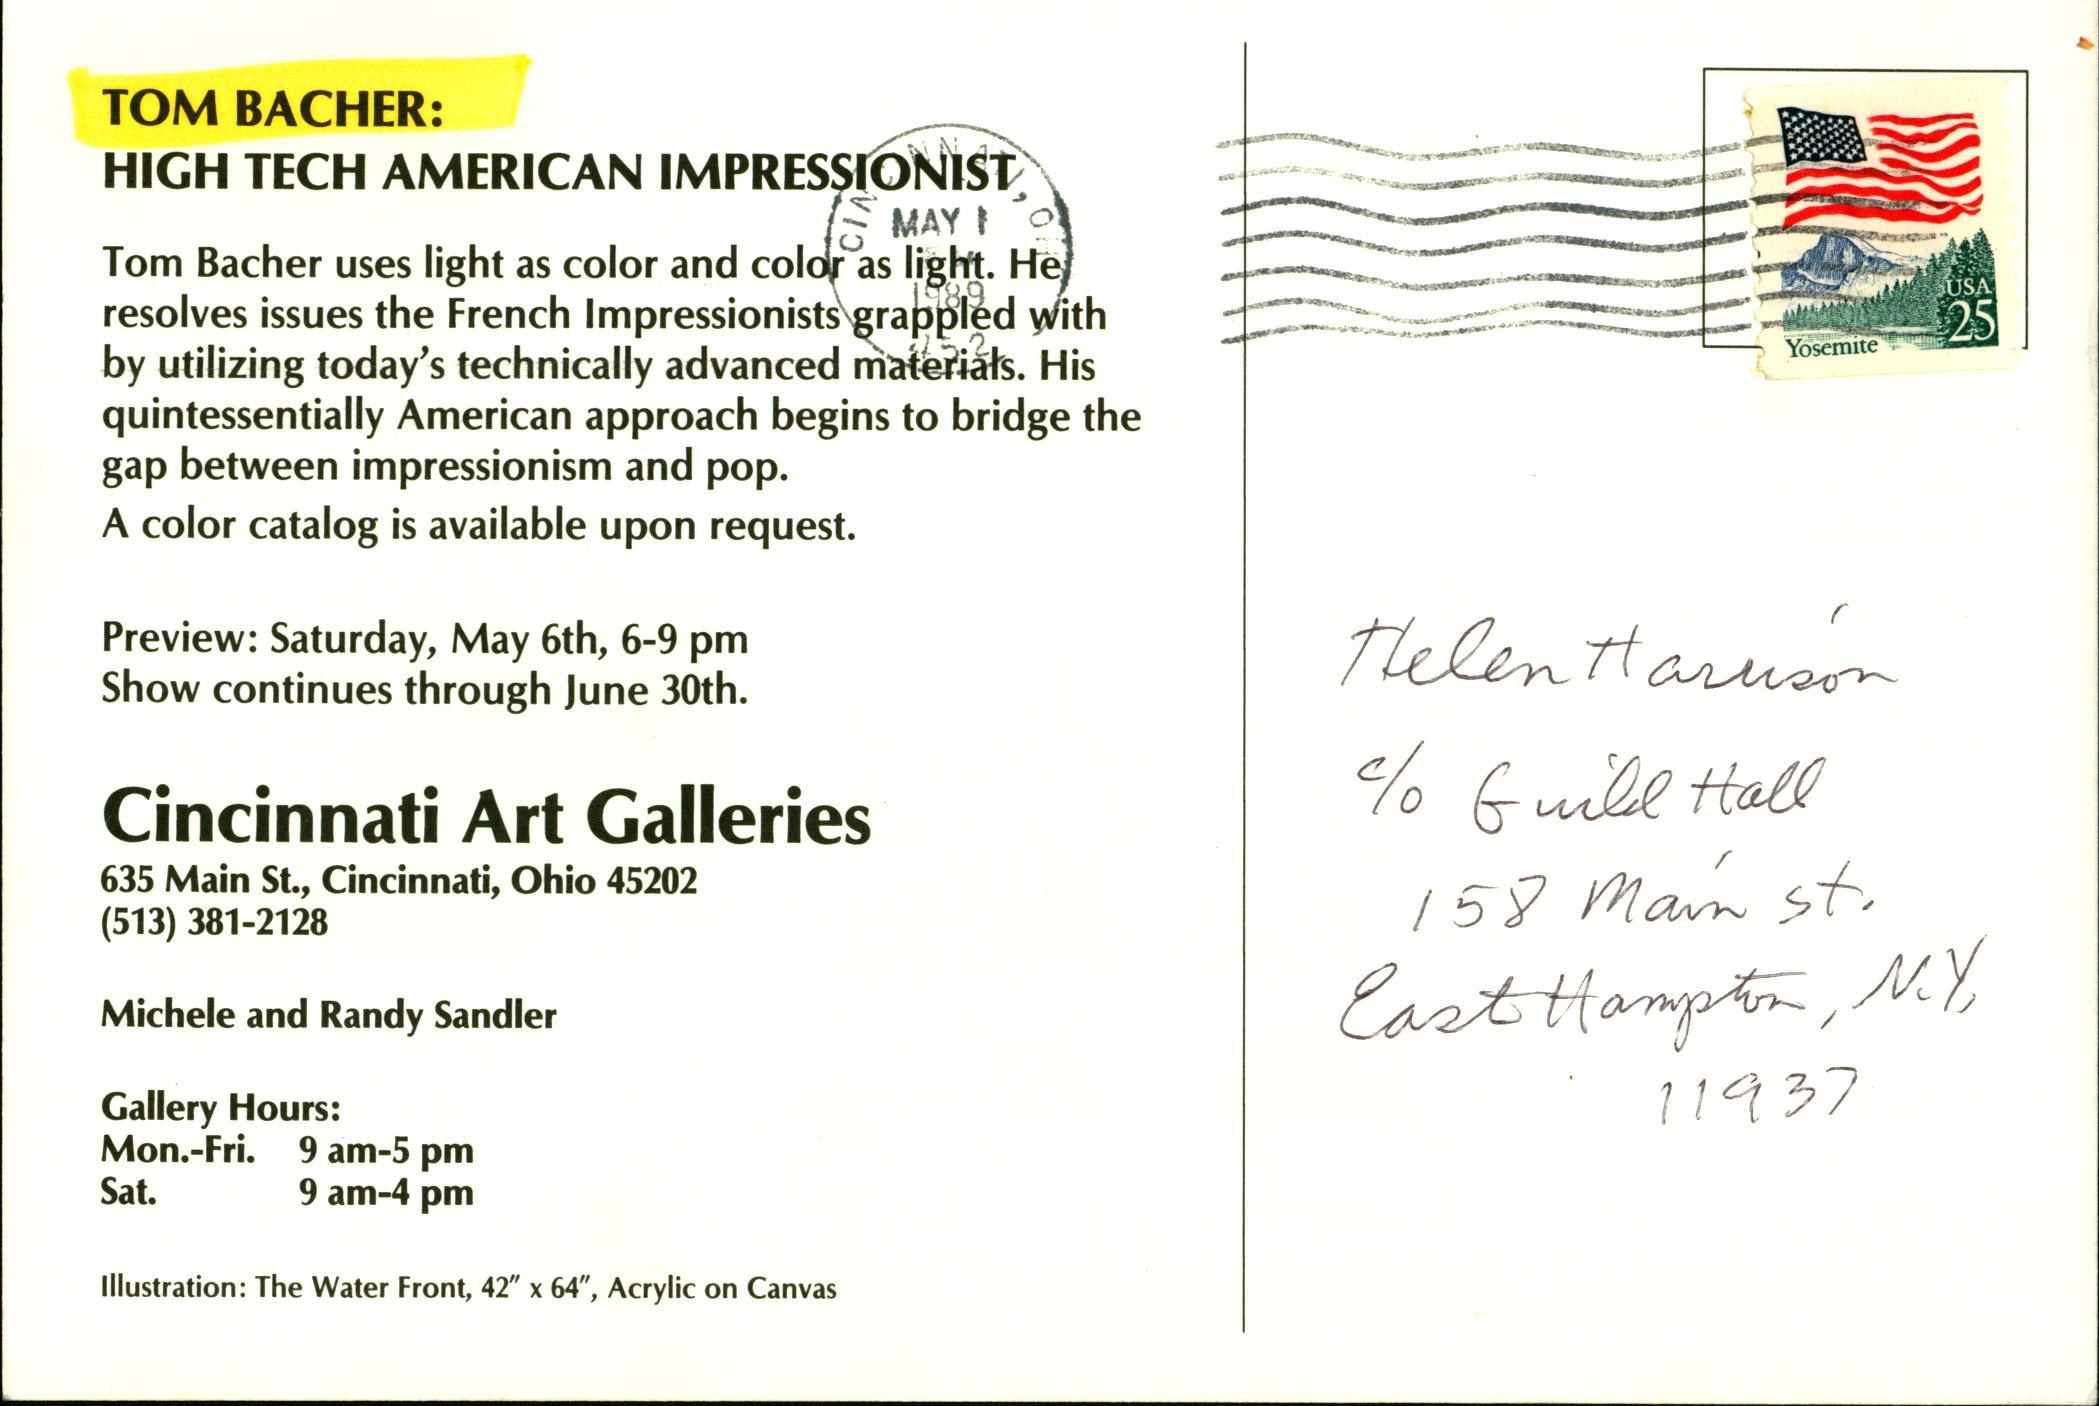 TOM BACHER:
HIGH TECH AMERICAN IMPRESSIONIST
Tom Bacher uses light as color and color as light. He
resolves issues the French Impressionists grappled with
by utilizing today's technically advanced materials. His
quintessentially American approach begins to bridge the
gap between impressionism and pop.
A color catalog is available upon request.
Preview: Saturday, May 6th, 6-9 pm
Show continues through June 30th.
Cincinnati Art Galleries
635 Main St., Cincinnati, Ohio 45202
(513) 381-2128
Michele and Randy Sandler
Gallery Hours:
Mon.-Fri. 9 am-5 pm
Sat. 9 am-4 pm
Illustration: The Water Front, 42" x 64", Acrylic on Canvas
CINCINNATI, OH
MAY 1
1989
452
USA
25
Yosemite
Helen Harrison
c/o Guild Hall
158 Main st.
East Hampton, N.Y.
11937